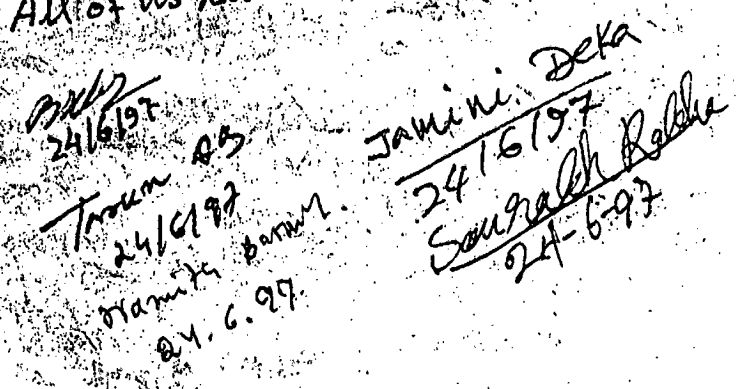 All of us
24/6/97
Tarun Das
24/6/97
Namita Barman.
24.6.97.
Jamini Deka
24/6/97
Saurabh Rabha
24-6-97